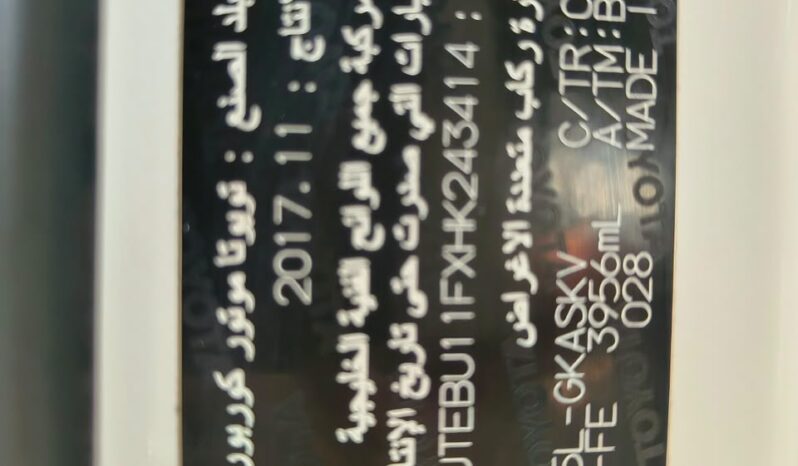 بلد الصنع : تويوتا موتور كوربور
نتاج : 2017.11
مركبة جميع اللوائح الفنية الخليجية
يارات التي صدرت حتى تاريخ الإنتا
JTEBU11FXHK243414 :
ة ركاب متعددة الاغراض
5L-GKASKV C/TR:
-FE 3956mL A/TM:B
028 MADE